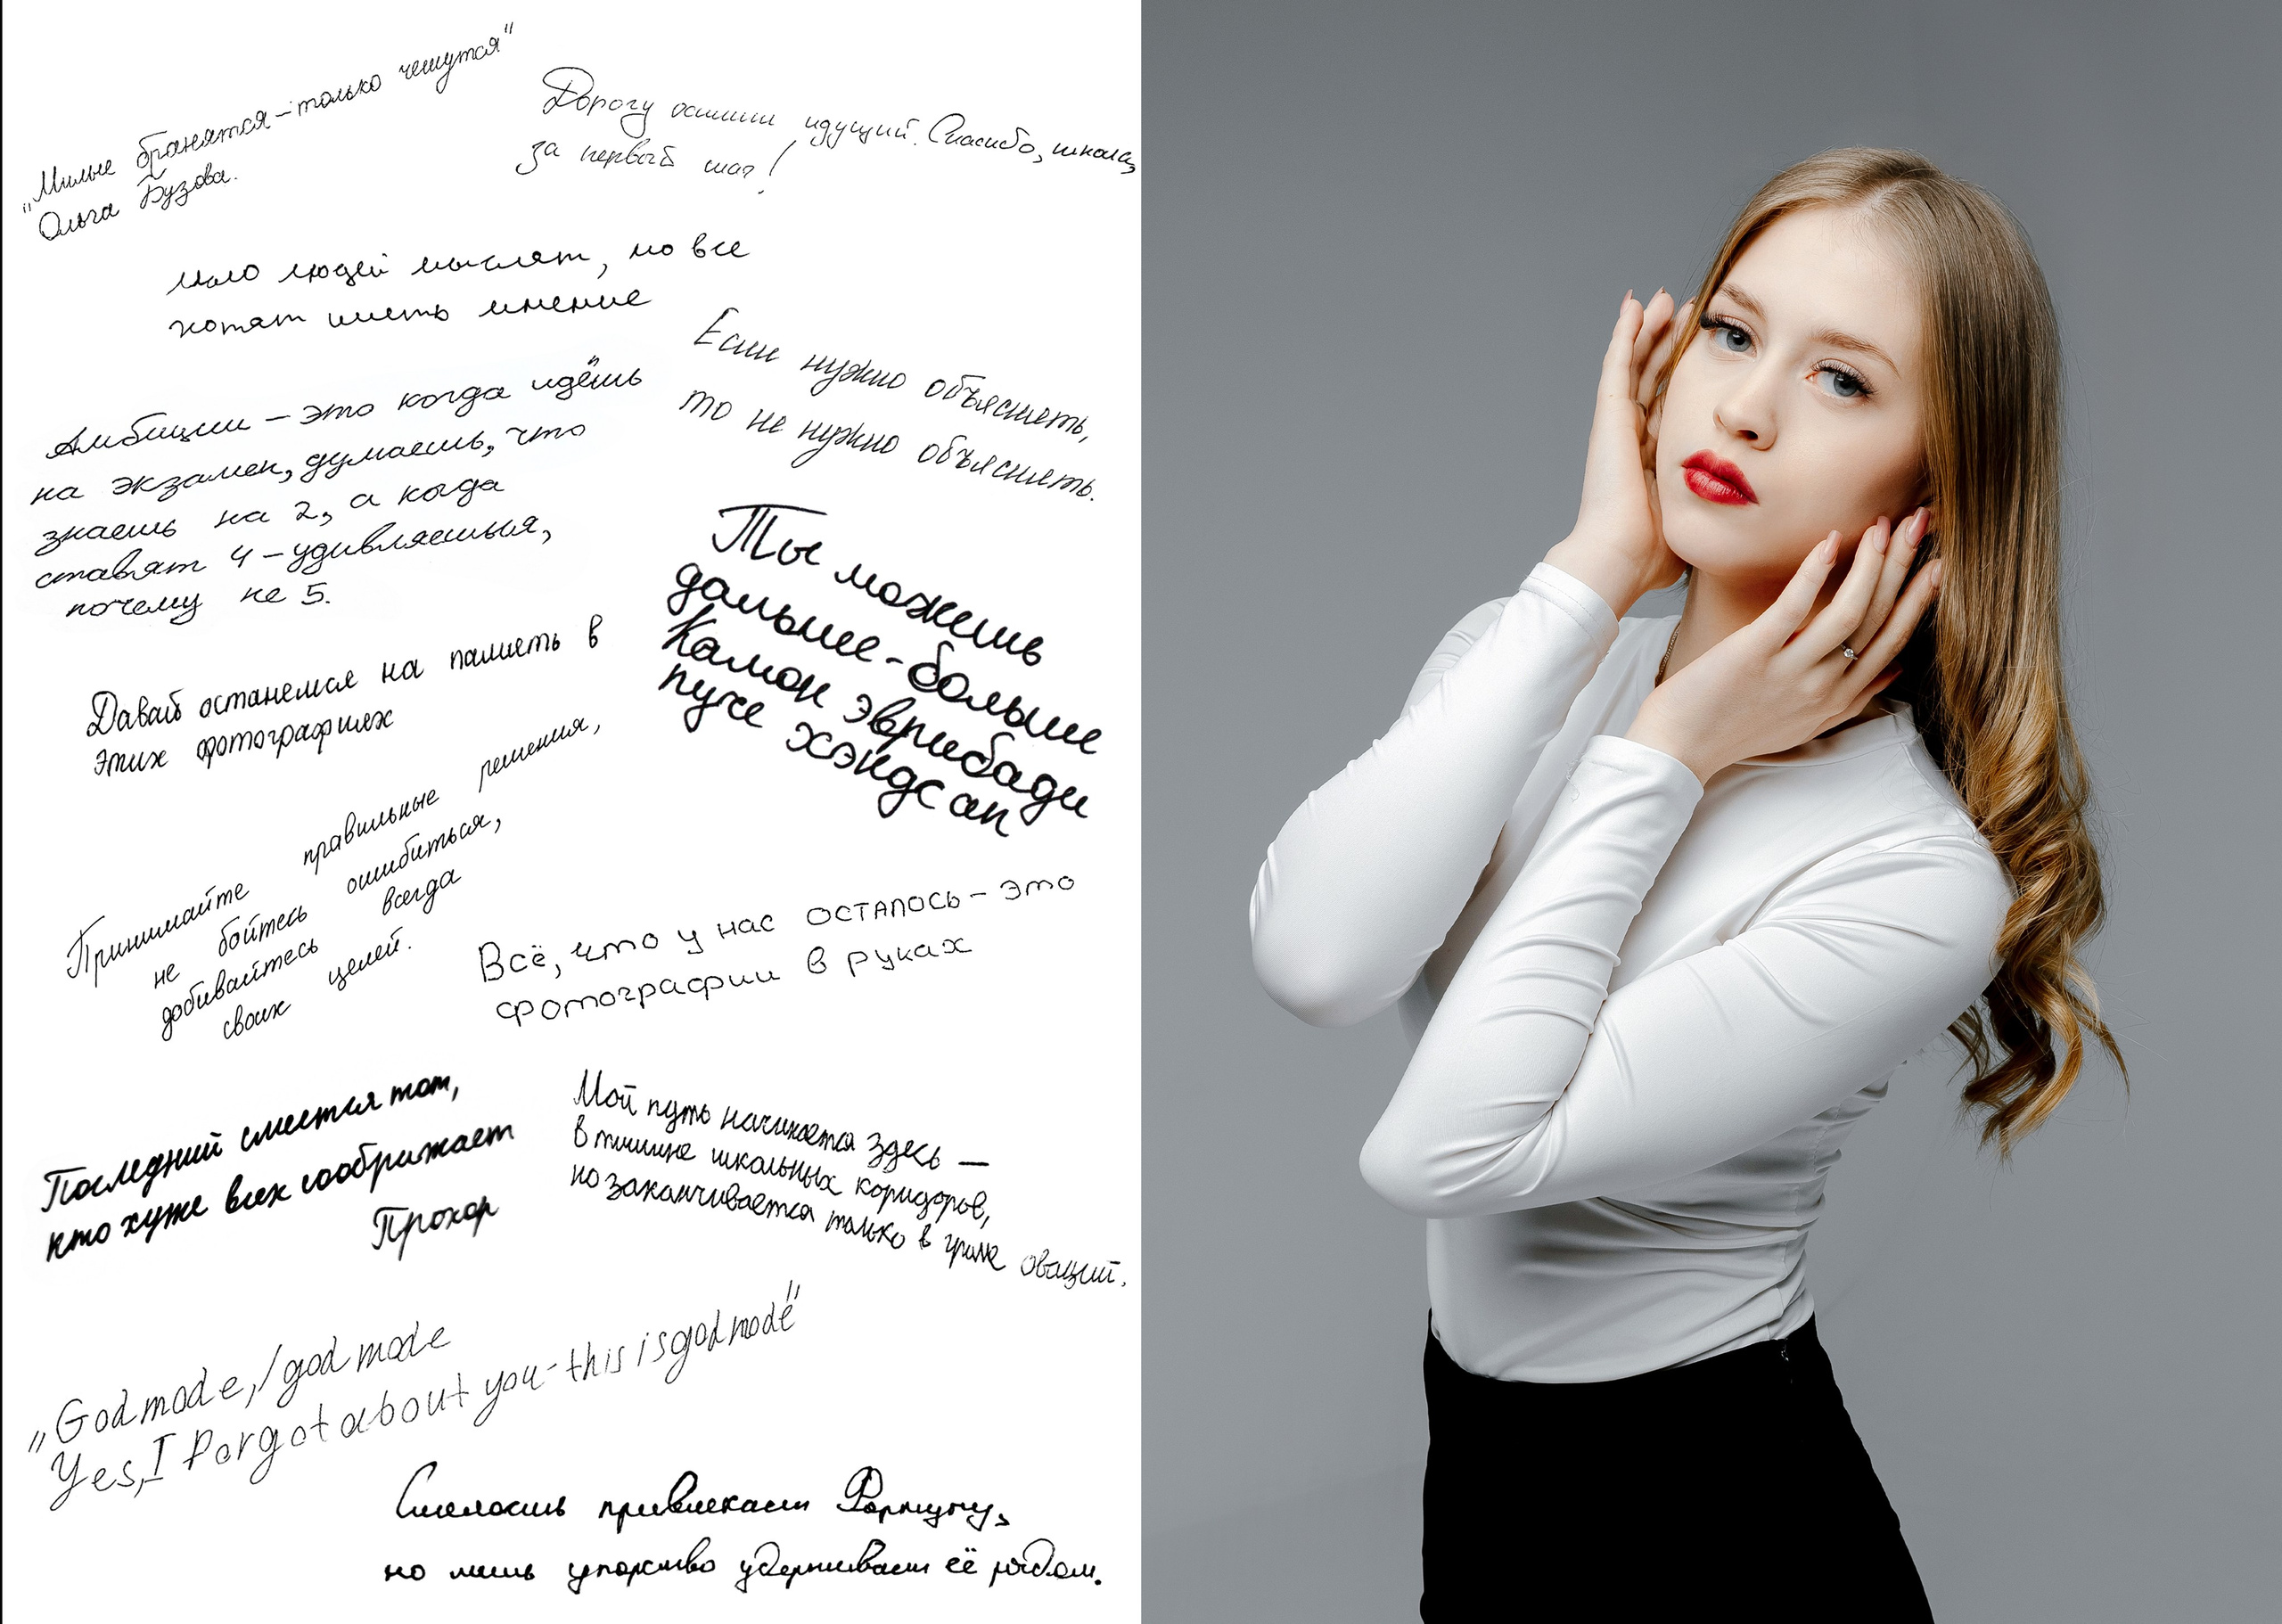 "Милые бранятся – только чешутся"
Ольга Бузова.
Дорогу осилит идущий. Спасибо, школа,
за первый шаг!
Мало людей мыслят, но все
хотят иметь мнение
Если нужно объяснять,
то не нужно объяснять.
Амбиции – это когда идёшь
на экзамен, думаешь, что
знаешь на 2, а когда
ставят 4 – удивляешься,
почему не 5.
Ты можешь
дальше - больше
Камон эврибади
пуче хэндс ап
Давай останемся на память в
этих фотографиях
Принимайте правильные решения,
не бойтесь ошибиться,
добивайтесь всегда
своих целей.
Всё, что у нас осталось – это
фотографии в руках
Последний смеется тот,
кто хуже всех соображает
Прохор
Мой путь начинается здесь —
в тишине школьных коридоров,
но заканчивается только в громе оваций.
"God mode, / god mode
Yes, I forgot about you - this is god mode"
Смелость привлекает Фортуну,
но лишь упорство удерживает её рядом.